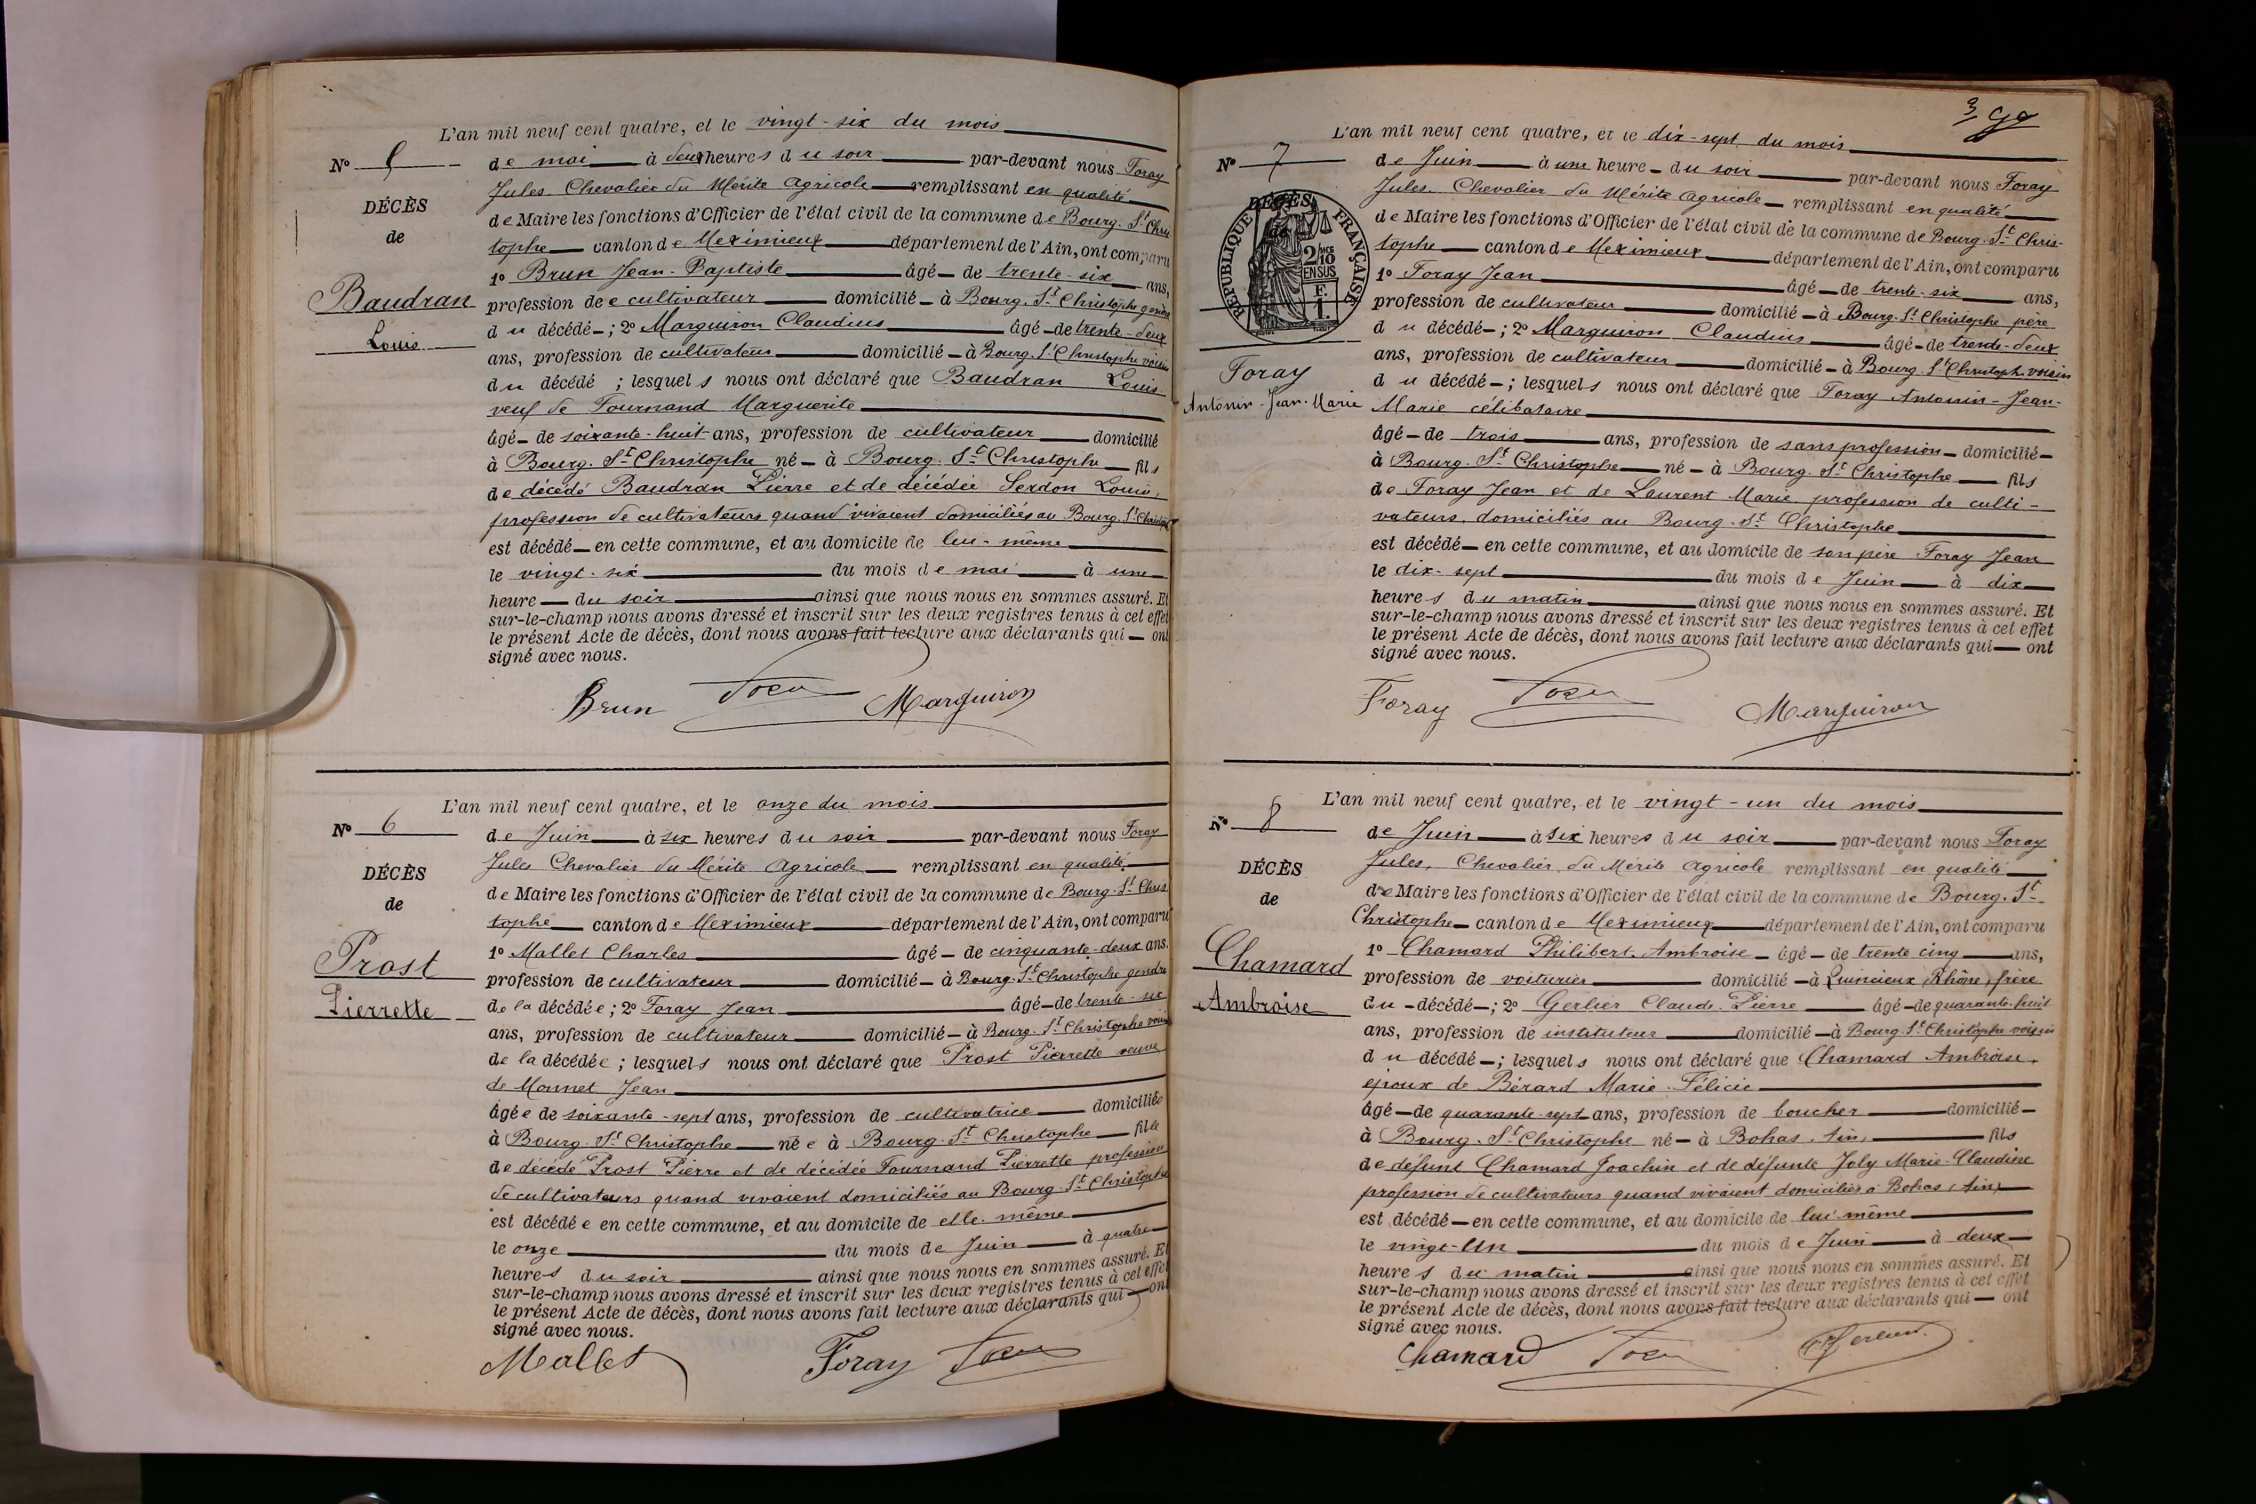 L'an mil neuf cent quatre, et le vingt-six du mois
N° 5
de mai à deux heures du soir par-devant nous Foray
Jules Chevalier du Mérite Agricole remplissant en qualité
DÉCÈS
de Maire les fonctions d'Officier de l'état civil de la commune de Bourg. St Chris
de
tophe canton de Meximieux département de l'Ain, ont comparu
1° Brun Jean-Baptiste âgé de trente-six ans,
Baudran
profession de cultivateur domicilié à Bourg. St Christophe gendre
Louis
du décédé; 2° Marguiron Claudius âgé de trente-deux
ans, profession de cultivateur domicilié à Bourg. St Christophe voisin
du décédé ; lesquels nous ont déclaré que Baudran Louis
veuf de Tournand Marguerite
âgé de soixante-huit ans, profession de cultivateur domicilié
à Bourg. St Christophe né à Bourg. St Christophe fils
de décédé Baudran Pierre et de décédée Serdon Louise,
profession de cultivateurs quand vivaient domiciliés au Bourg. St Christophe
est décédé en cette commune, et au domicile de lui-même
le vingt-six du mois de mai à une
heure du soir ainsi que nous nous en sommes assuré. Et
sur-le-champ nous avons dressé et inscrit sur les deux registres tenus à cet effet
le présent Acte de décès, dont nous avons fait lecture aux déclarants qui ont
signé avec nous.
Brun Foray Marguiron
L'an mil neuf cent quatre, et le onze du mois
N° 6
de Juin à six heures du soir par-devant nous Foray
Jules Chevalier du Mérite Agricole remplissant en qualité
DÉCÈS
de Maire les fonctions d'Officier de l'état civil de la commune de Bourg. St Chris
de
tophe canton de Meximieux département de l'Ain, ont comparu
1° Mallet Charles âgé de cinquante-deux ans.
Prost
profession de cultivateur domicilié à Bourg. St Christophe gendre
Pierrette
de la décédée; 2° Foray Jean âgé de trente-six
ans, profession de cultivateur domicilié à Bourg. St Christophe voisin
de la décédée ; lesquels nous ont déclaré que Prost Pierrette veuve
de Monnet Jean
âgée de soixante-sept ans, profession de cultivatrice domiciliée
à Bourg. St Christophe née à Bourg. St Christophe fille
de décédé Prost Pierre et de décédée Tournand Pierrette profession
de cultivateurs quand vivaient domiciliés au Bourg. St Christophe
est décédée en cette commune, et au domicile de elle-même
le onze du mois de Juin à quatre
heures du soir ainsi que nous nous en sommes assuré. Et
sur-le-champ nous avons dressé et inscrit sur les deux registres tenus à cet effet
le présent Acte de décès, dont nous avons fait lecture aux déclarants qui ont
signé avec nous.
Mallet Foray Foray
L'an mil neuf cent quatre, et le dix-sept du mois
N° 7
de Juin à une heure du soir par-devant nous Foray
Jules Chevalier du Mérite Agricole remplissant en qualité
DÉCÈS
RÉPUBLIQUE FRANÇAISE
2/10 EN SUS
F. 1.
de Maire les fonctions d'Officier de l'état civil de la commune de Bourg. St Chris-
tophe canton de Meximieux département de l'Ain, ont comparu
1° Foray Jean âgé de trente-six ans,
profession de cultivateur domicilié à Bourg. St Christophe père
du décédé; 2° Marguiron Claudius âgé de trente-deux
Foray
ans, profession de cultivateur domicilié à Bourg. St Christophe voisin
Antonin-Jean-Marie
du décédé ; lesquels nous ont déclaré que Foray Antonin-Jean-
Marie célibataire
âgé de trois ans, profession de sans profession domicilié
à Bourg. St Christophe né à Bourg. St Christophe fils
de Foray Jean et de Laurent Marie, profession de culti-
vateurs, domiciliés au Bourg. St Christophe
est décédé en cette commune, et au domicile de son père Foray Jean
le dix-sept du mois de Juin à dix
heures du matin ainsi que nous nous en sommes assuré. Et
sur-le-champ nous avons dressé et inscrit sur les deux registres tenus à cet effet
le présent Acte de décès, dont nous avons fait lecture aux déclarants qui ont
signé avec nous.
Foray Foray Marguiron
L'an mil neuf cent quatre, et le vingt-un du mois
N° 8
de Juin à six heures du soir par-devant nous Foray
Jules, Chevalier du Mérite Agricole remplissant en qualité
DÉCÈS
de Maire les fonctions d'Officier de l'état civil de la commune de Bourg. St
de
Christophe canton de Meximieux département de l'Ain, ont comparu
Chamard
1° Chamard Philibert-Ambroise âgé de trente cinq ans,
profession de voiturier domicilié à Quincieux (Rhône) frère
Ambroise
du décédé; 2° Gerlier Claude-Pierre âgé de quarante-huit
ans, profession de instituteur domicilié à Bourg. St Christophe voisin
du décédé ; lesquels nous ont déclaré que Chamard Ambroise,
époux de Bérard Marie-Félicie
âgé de quarante-sept ans, profession de boucher domicilié
à Bourg. St Christophe né à Bohas, Ain, fils
de défunt Chamard Joachin et de défunte Joly Marie-Claudine
profession de cultivateurs quand vivaient domiciliés à Bohas (Ain)
est décédé en cette commune, et au domicile de lui même
le vingt-Un du mois de Juin à deux
heures du matin ainsi que nous nous en sommes assuré. Et
sur-le-champ nous avons dressé et inscrit sur les deux registres tenus à cet effet
le présent Acte de décès, dont nous avons fait lecture aux déclarants qui ont
signé avec nous.
Chamard Foray Gerlier